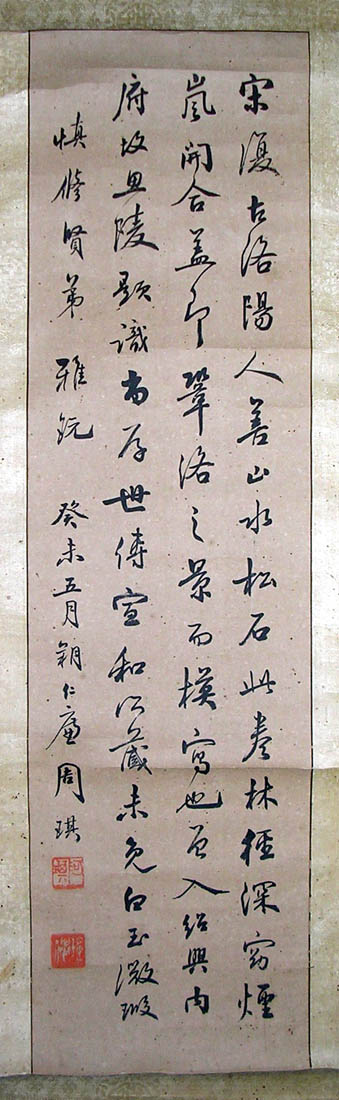 宋復古洛陽人善山水松石此卷林徑深窈煙
嵐開合蓋即鞏洛之景而模寫也曾入紹興內
府故思陵題識尚存世傳宣和所藏未免白玉微瑕
慎修賢弟 雅玩 癸未五月 仁廉周琪